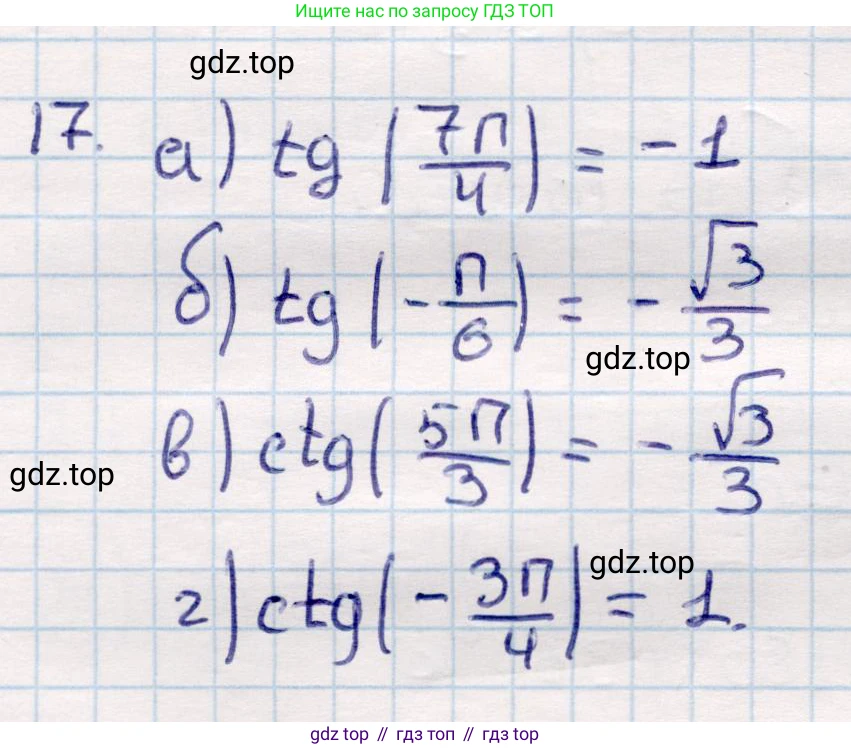 Ищите нас по запросу ГДЗ ТОП
gdz.top
17. а) tg (7π/4) = -1
б) tg (-π/6) = -√3/3
gdz.top
в) ctg (5π/3) = -√3/3
gdz.top
gdz.top
г) ctg (-3π/4) = 1.
gdz top // гдз топ // gdz top